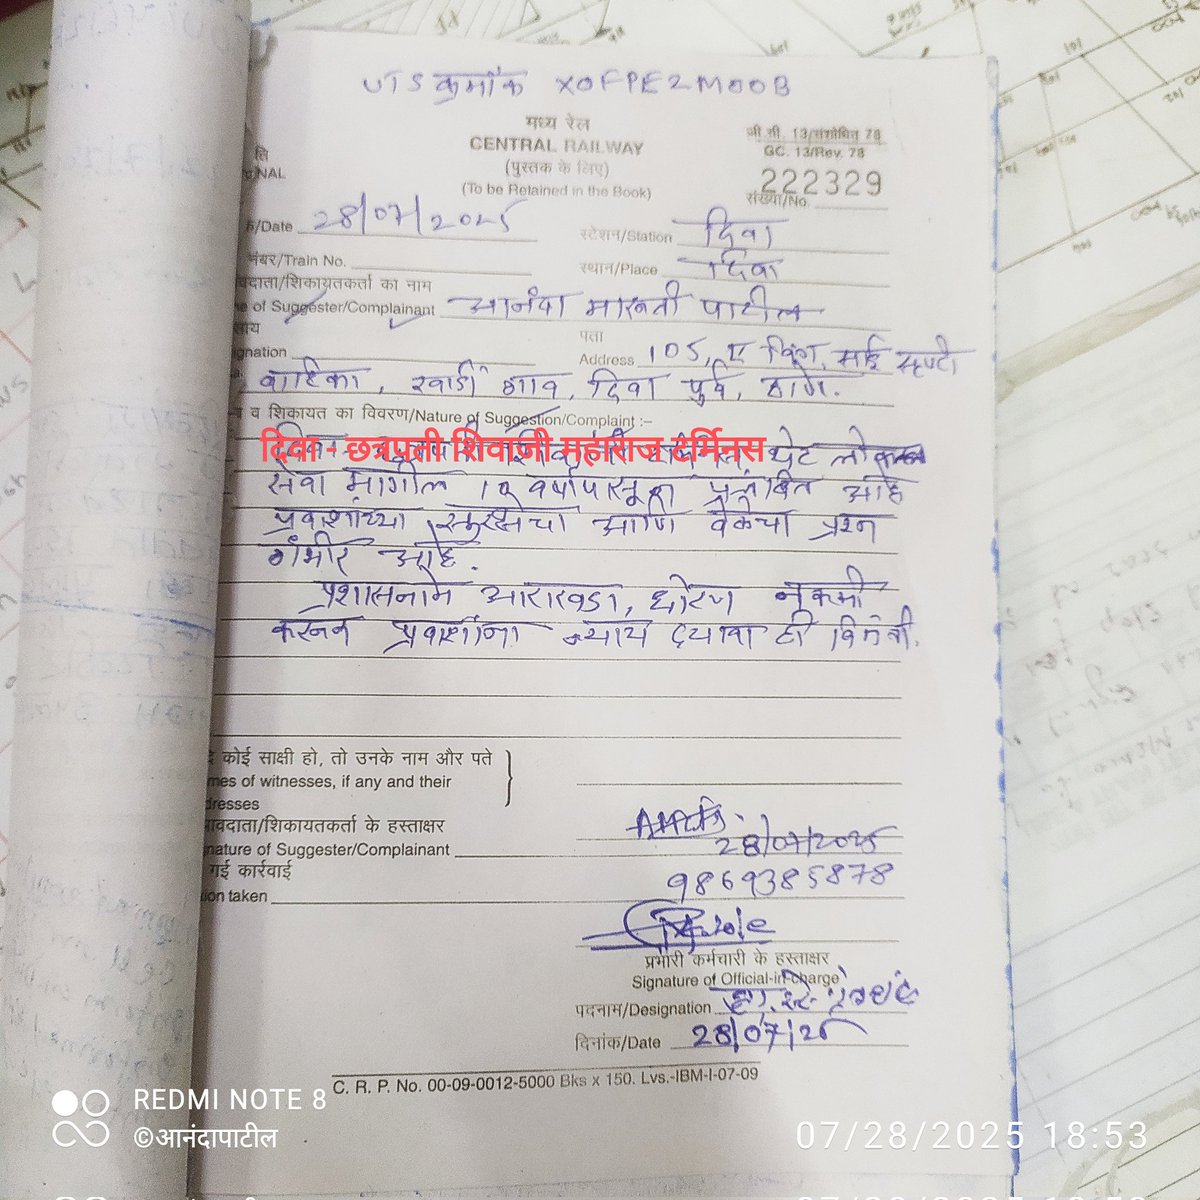 UTS क्रमांक X0FPE2M00B
मध्य रेल
CENTRAL RAILWAY
(पुस्तक के लिए)
(To be Retained in the Book)
जी.सी. 13/संशोधित 78
GC. 13/Rev. 78
222329
संख्या/No.
/Date 28/07/2025
स्टेशन/Station दिवा
नंबर/Train No.
स्थान/Place दिवा
वदाता/शिकायतकर्ता का नाम
e of Suggester/Complainant आनंदा मारुती पाटील
साय
gnation
पता
Address 105, ए विंग, साई सृष्टी
वाटिका, खार्डी गाव, दिवा पुर्व, ठाणे.
व शिकायत का विवरण/Nature of Suggestion/Complaint :–
दिवा - छत्रपती शिवाजी महाराज टर्मिनस
थेट लोकल
सेवा मागील 12 वर्षापासून प्रलंबित आहे
प्रवाशांच्या सुरक्षेचा आणि वेळेचा प्रश्न
गंभीर आहे.
प्रशासनाने आराखडा, धोरण नक्की
करून प्रवाशांना न्याय द्यावा ही विनंती.
दि कोई साक्षी हो, तो उनके नाम और पते
mes of witnesses, if any and their
dresses
ावदाता/शिकायतकर्ता के हस्ताक्षर
nature of Suggester/Complainant
28/07/2025
9869385878
गई कार्रवाई
ion taken
प्रभारी कर्मचारी के हस्ताक्षर
Signature of Official-in-charge
पदनाम/Designation
दिनांक/Date 28/07/25
C. R. P. No. 00-09-0012-5000 Bks x 150. Lvs.-IBM-I-07-09
REDMI NOTE 8
©आनंदापाटील
07/28/2025 18:53